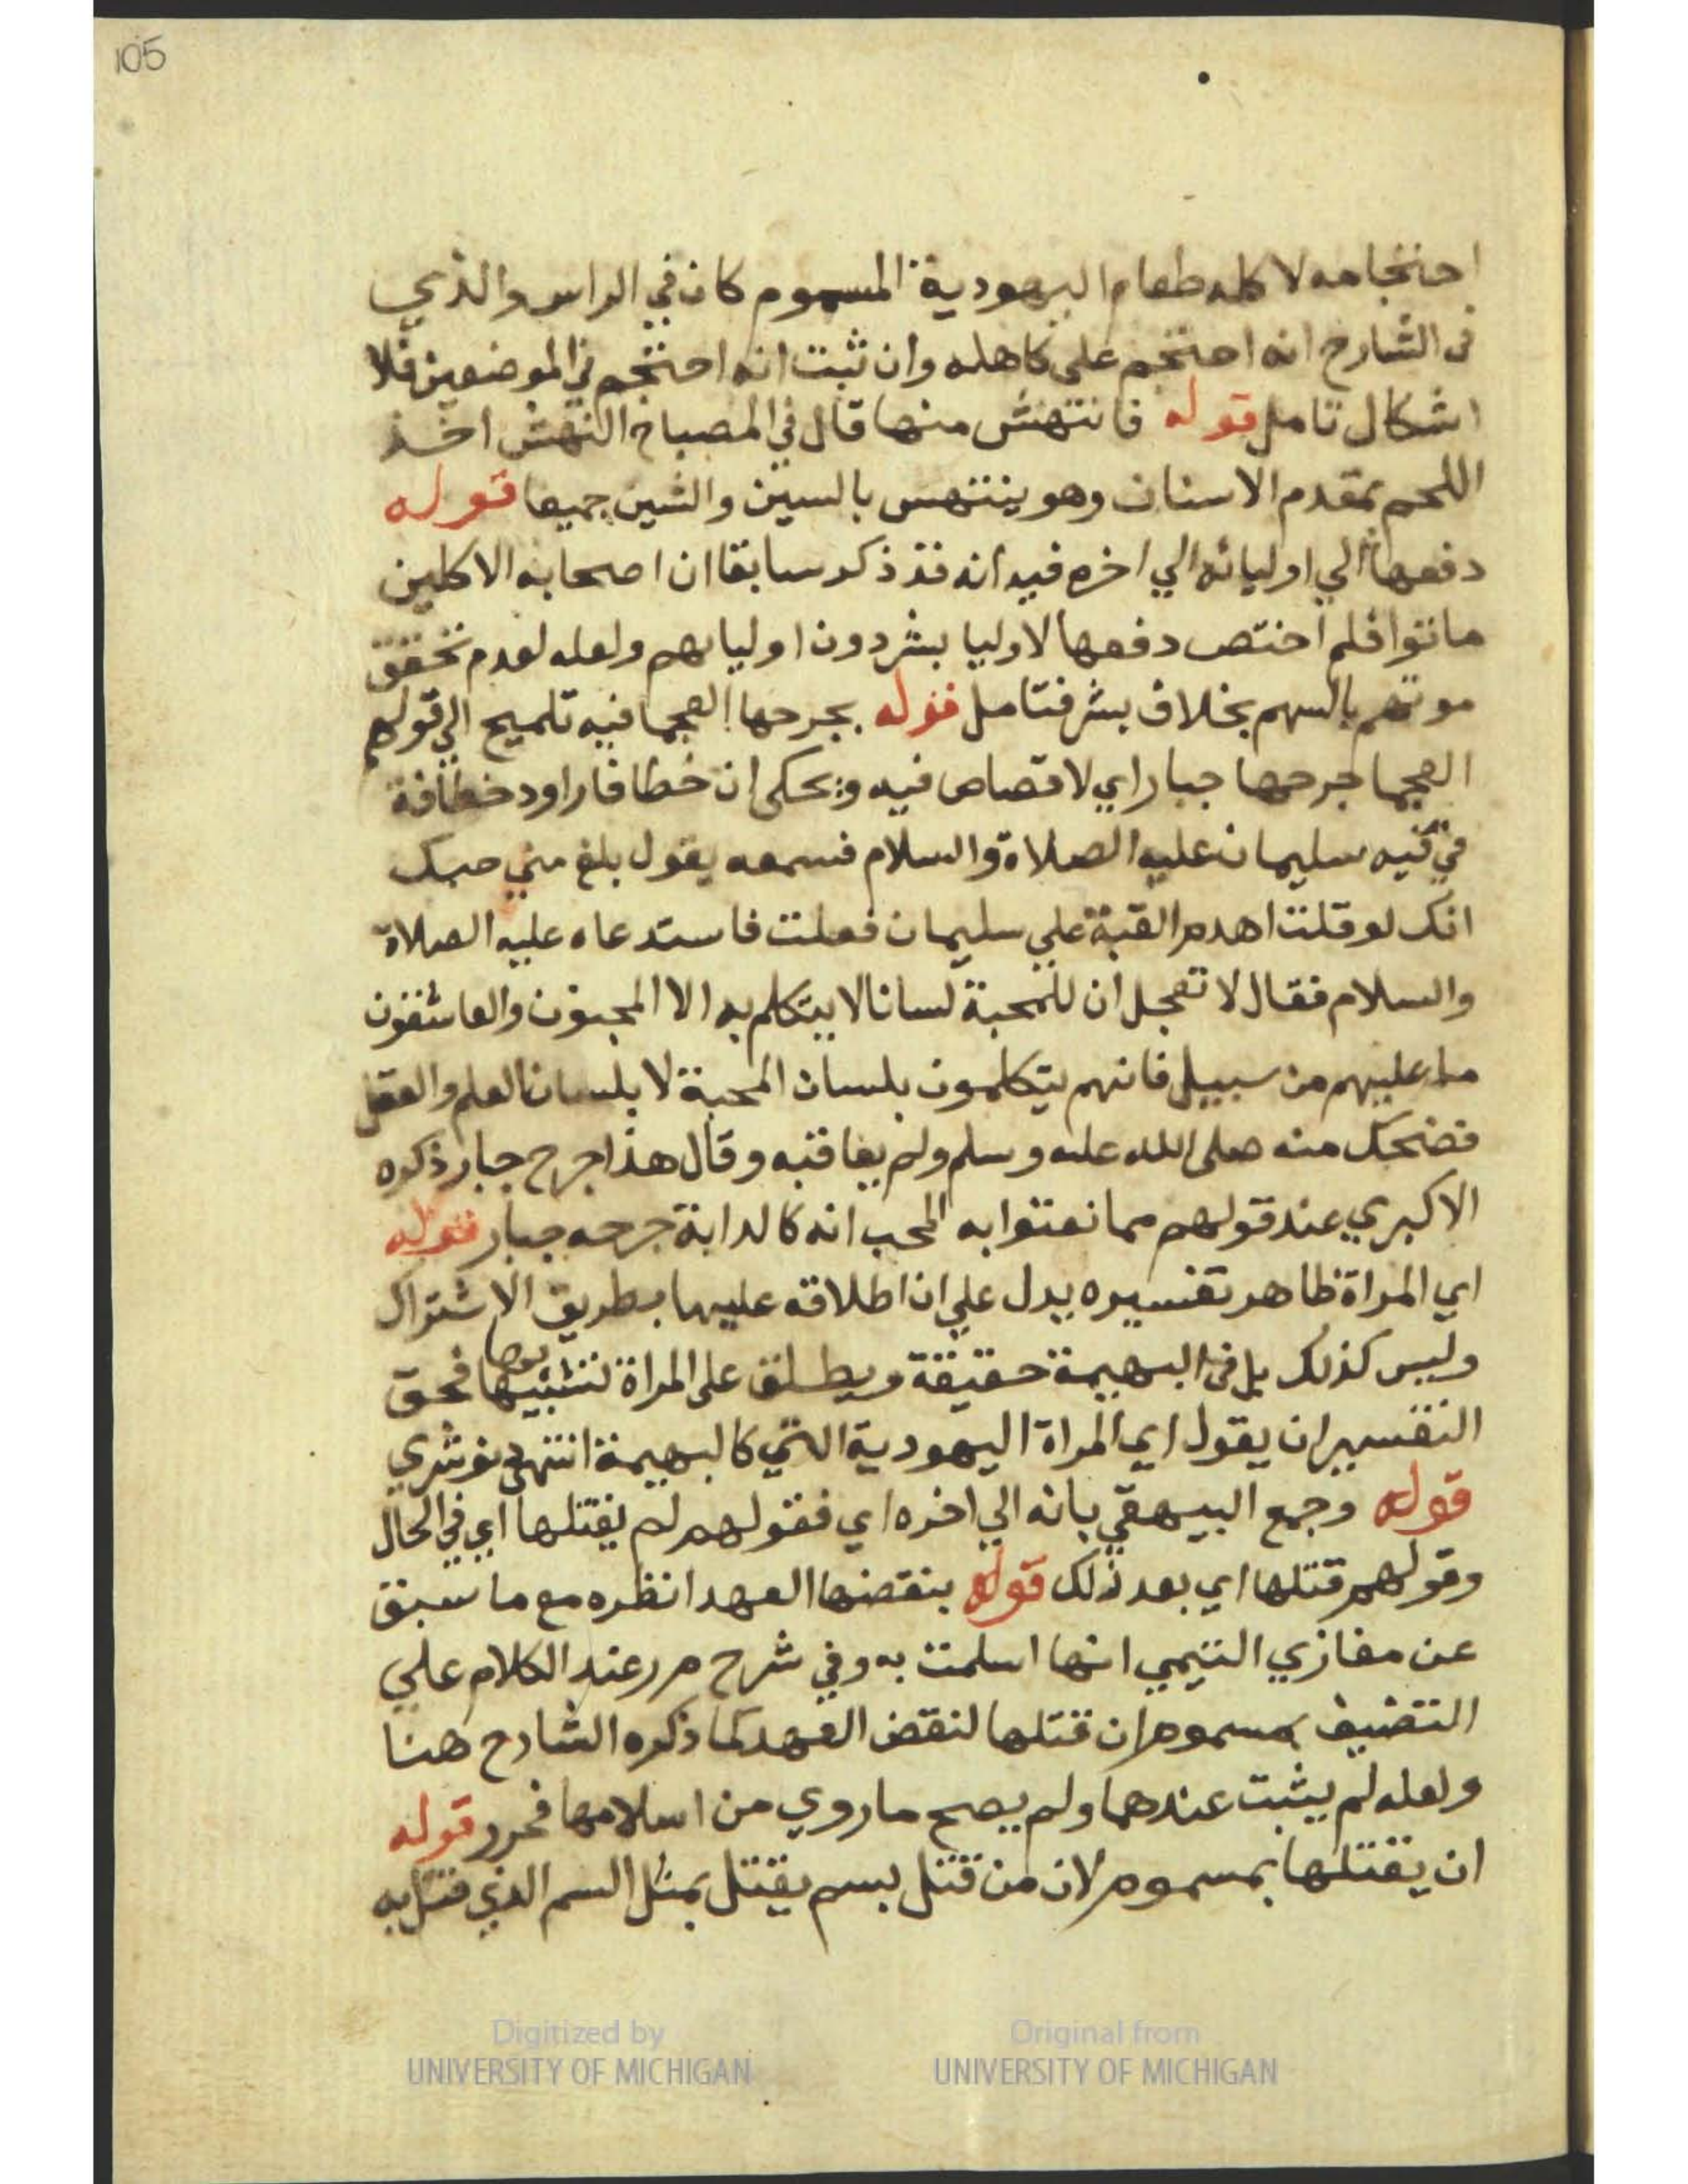 105
احتجامه لاكله طعام اليهودية المسموم كان في الراس والذي
في الشارح انه احتجم على كاهله وان ثبت انه احتجم في الموضعين فلا
اشكال تامل قوله فانتهش منها قال في المصباح النهش اخذ
اللحم بمقدم الاسنان وهو ينتهس بالسين والشين جميعا قوله
دفعها الي اوليائه الي اخره فيه انه قد ذكر سابقا ان اصحابه الاكلين
ماتوا فلم اختص دفعها لاوليا بشر دون اوليايهم ولعله لعدم تحقق
موتهم بالسهم بخلاف بشر فتامل قوله بجرحها العجما فيه تلميح الي قولهم
العجما جرحها جبار اي لا قصاص فيه ويحكى ان خطافا راود خطافة
في قبه سليمان عليه الصلاة والسلام فسمعه يقول بلغ مني حبك
انك لو قلت اهدم القبة علي سليمان فعلت فاستدعاه عليه الصلاة
والسلام فقال لا تعجل ان للمحبة لسانا لا يتكلم به الا المحبون والعاشقون
ما عليهم من سبيل فانهم يتكلمون بلسان المحبة لا بلسان العلم والعقل
فضحك منه صلى الله عليه وسلم ولم يعاقبه وقال هذا جرح جبار ذكره
الاكبري عند قولهم مما نعتوا به المحب انه كالدابة جرحه جبار قوله
اي المراة ظاهر تفسيره يدل علي ان اطلاقه عليها بطريق الاشتراك
وليس كذلك بل في البهيمة حقيقة ويطلق على المراة لتشبيهها بها فحق
التفسير ان يقول اي المراة اليهودية التي كالبهيمة انتهى نوشري
قوله وجمع البيهقي بانه الي اخره اي فقولهم لم يقتلها اي في الحال
وقولهم قتلها اي بعد ذلك قوله بنقضها العهد انظره مع ما سبق
عن مغازي التيمي انها اسلمت به وفي شرح م ر عند الكلام علي
التضييف بمسموم ان قتلها لنقض العهد كما ذكره الشارح هنا
ولعله لم يثبت عندهما ولم يصح ما روي من اسلامها فحرر قوله
ان يقتلها بمسموم لان من قتل بسم يقتل بمثل السم الذي قتل به
Digitized by
UNIVERSITY OF MICHIGAN
Original from
UNIVERSITY OF MICHIGAN